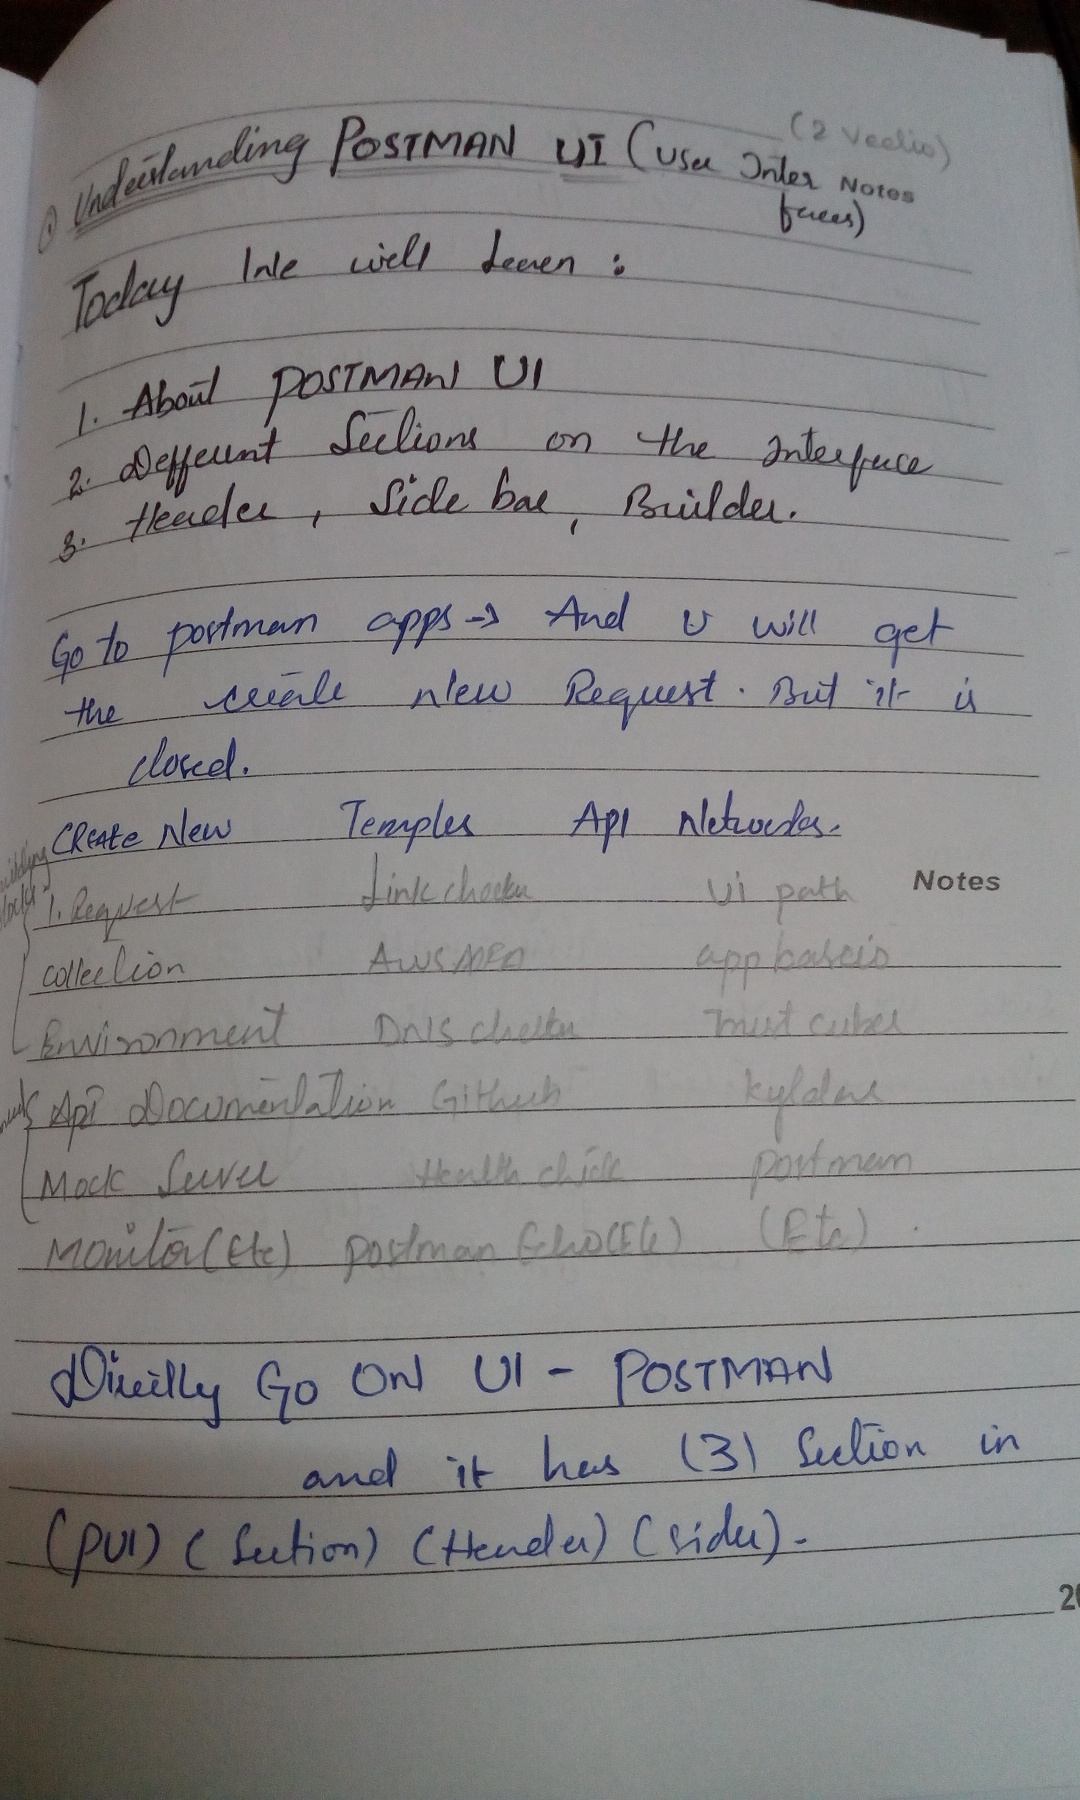 (2 Veedio)
① Understanding POSTMAN UI (User Inter Notes
faces)
Today We will learn :
1. About POSTMAN UI
2. Different Sections on the Interface
3. Header, Side bar, Builder.
Go to postman apps → And U will get
the create New Request. But it is
closed.
Create New Temples Api Networks.
1. Request Link checker Ui path Notes
collection AWS
Environment DNS checker
Api Documentation Github
Mock Server Health chick postman
Monitor (Etc) postman Echo (Etc) (Etc)
Directly Go ON UI - POSTMAN
and it has (3) Section in
(PUI) (Section) (Header) (sider).